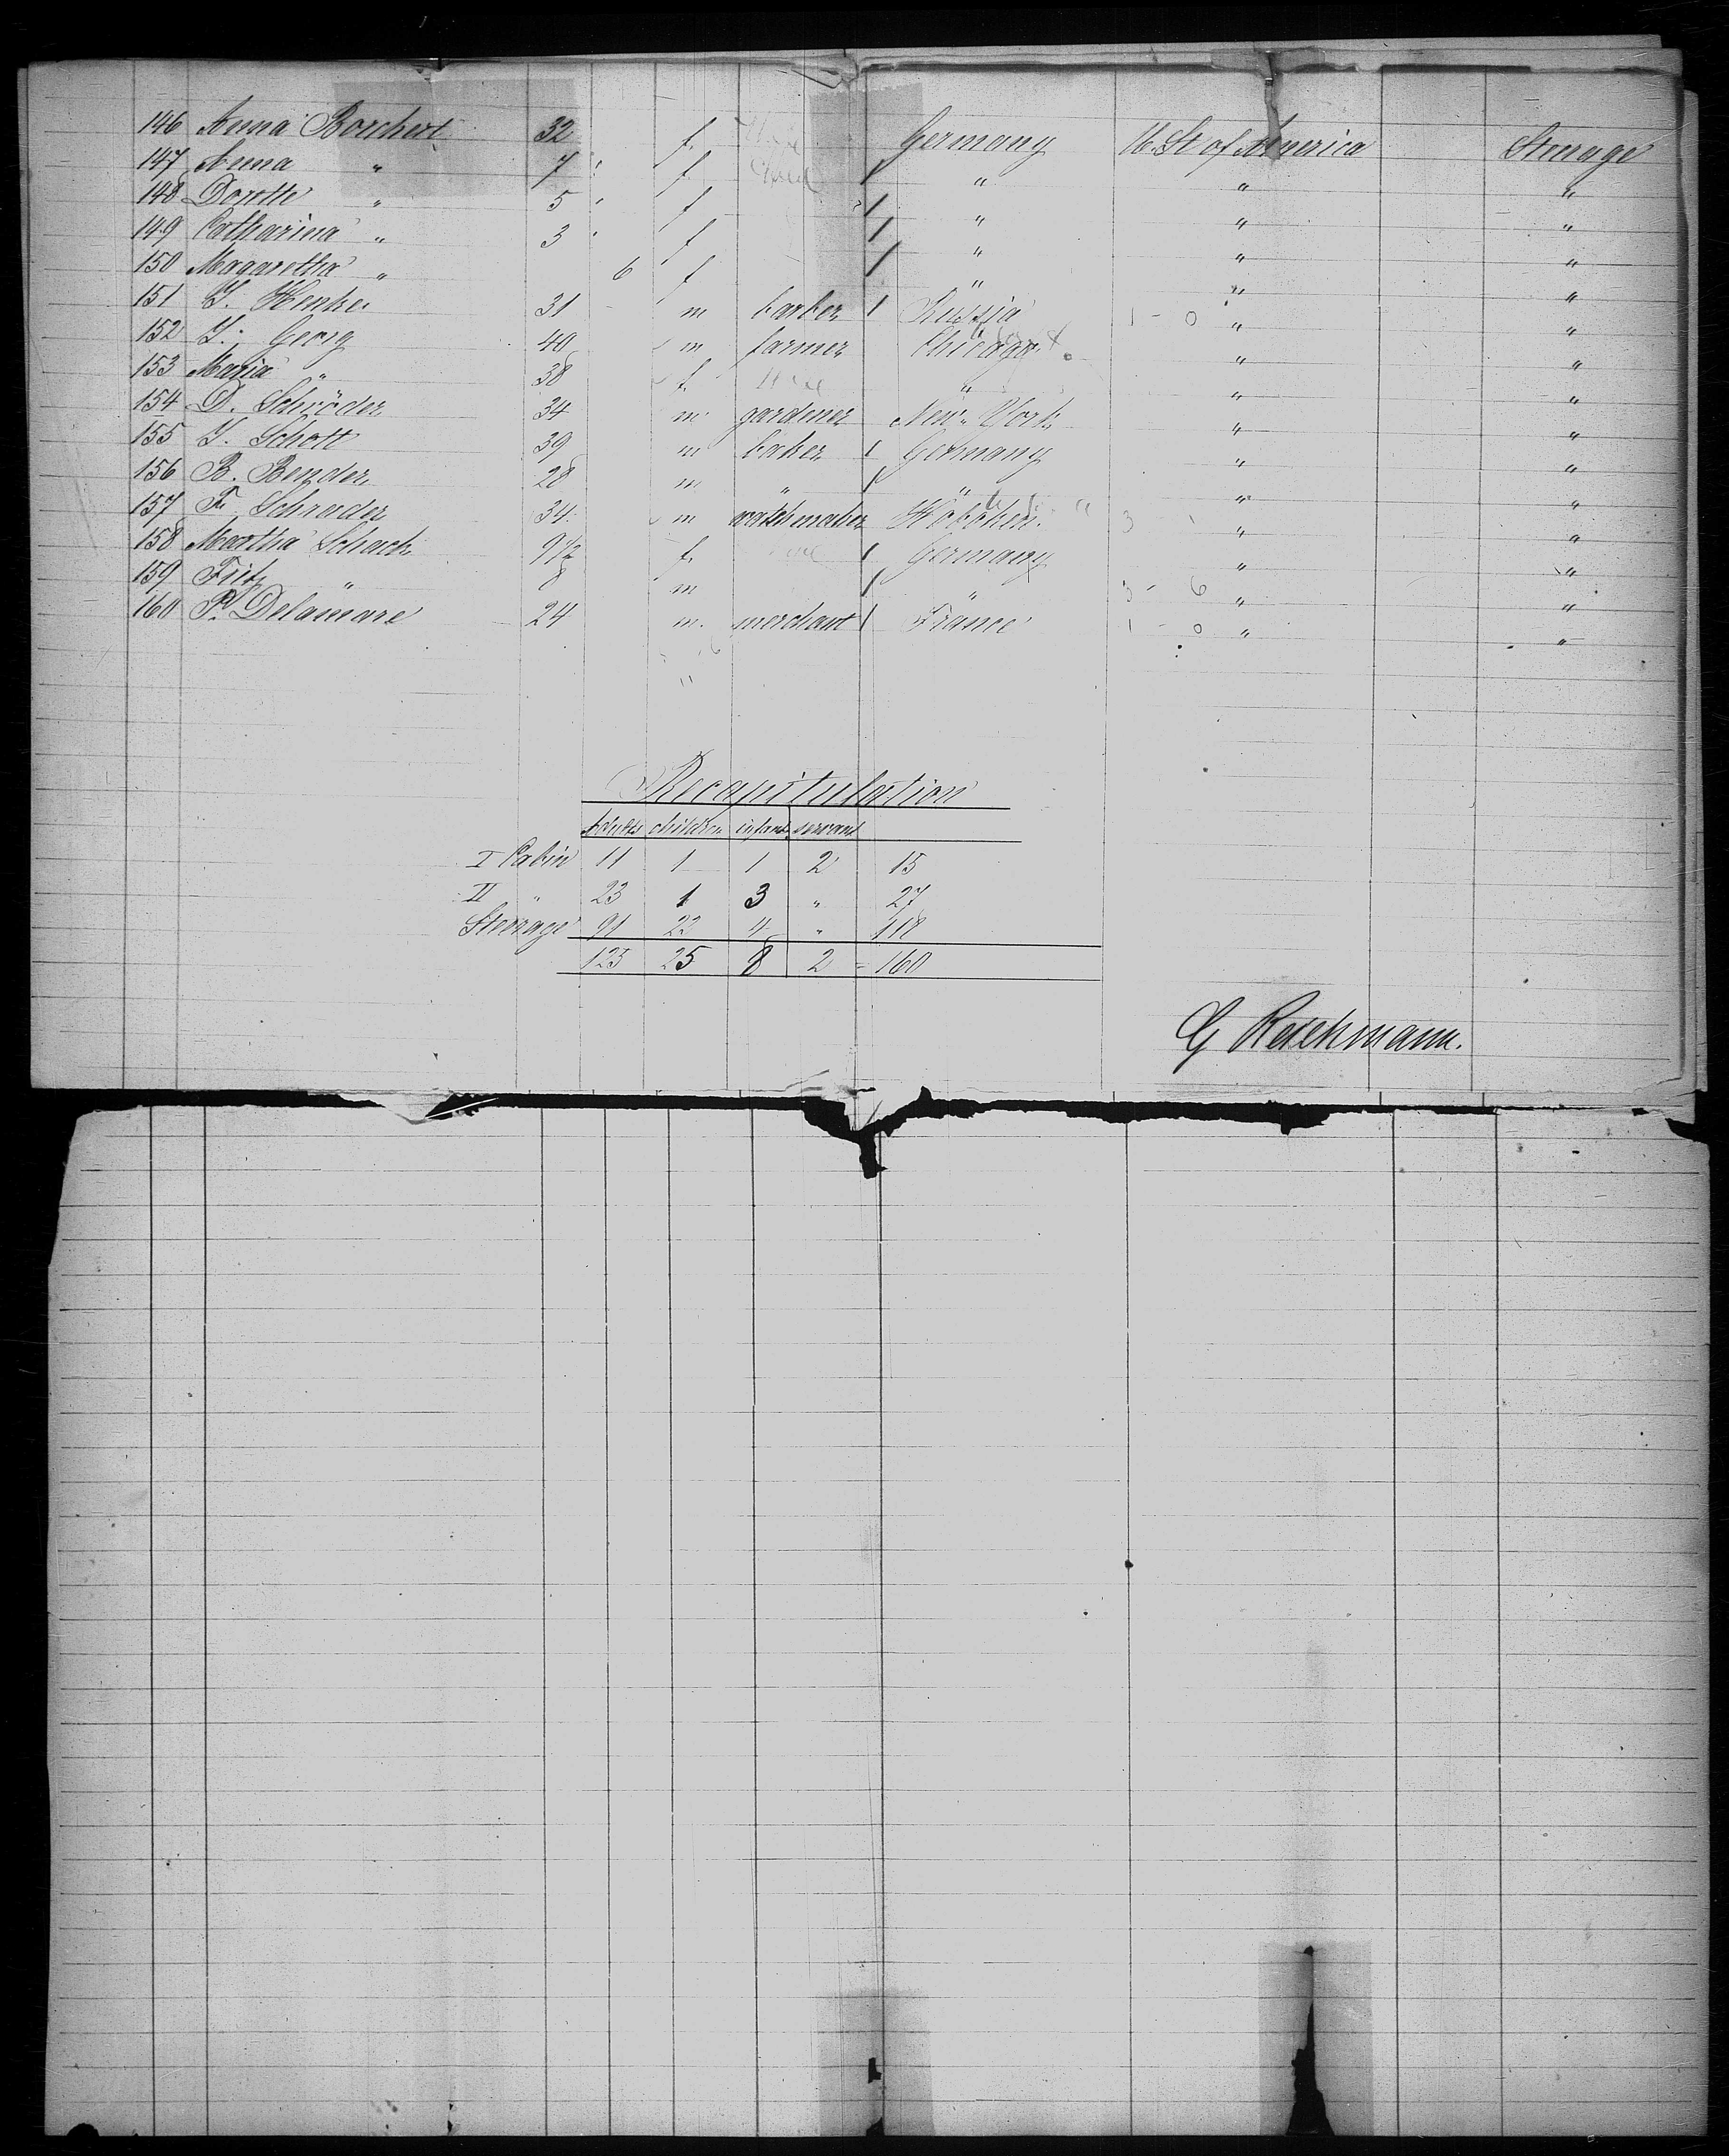 146 Anna Borchert 32 f. Germany U. St of America Steerage
147 Anna " 7 f " " "
148 Dorette " 5 f " " "
149 Catharina " 3 f " " "
150 Magaretha " 6 f " " "
151 Y. Henke 31 m barber Russia 1 - 0 " "
152 Y. Georg 40 m farmer Chicago " "
153 Maria " 38 f. " " "
154 D. Schröder 34 m gardiner New-York " "
155 Y. Schott 39 m baker Germany " "
156 B. Bender 28 m " " " "
157 F. Schreder 34 m watchmaker Hoboken 3 " "
158 Martha Schack 9 1/2 f. Germany " "
159 Fritz " 8 m " 3 - 6 " "
160 P. Delamare 24 m. merchant France 1 - 0 " "
Recapitulation
Adults children infants servant
I Cabin 11 1 1 2 15
II " 23 1 3 " 27
Steerage 91 22 4 " 118
125 25 8 2 = 160
G Reichmann.